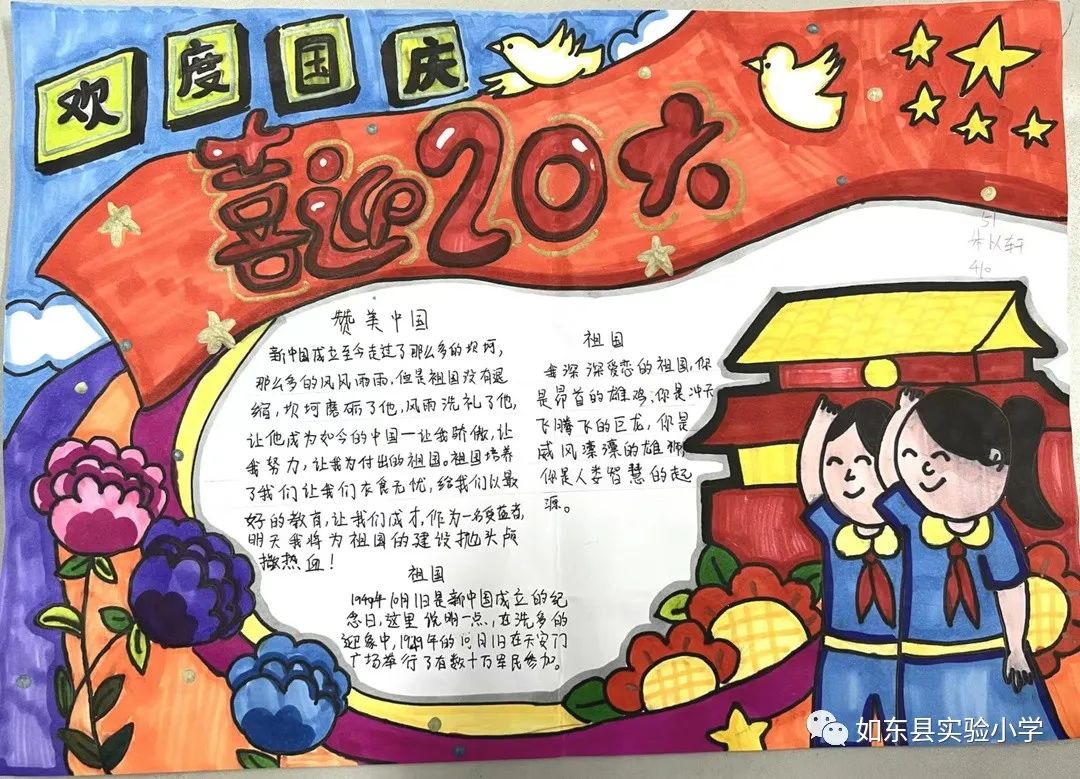 欢度国庆
喜迎20大
51
朱以轩
410
赞美中国
新中国成立至今走过了那么多的坎坷,
那么多的风风雨雨,但是祖国没有退
缩,坎坷磨砺了他,风雨洗礼了他,
让他成为如今的中国一让我骄傲,让
我努力,让我为付出的祖国。祖国培养
了我们让我们衣食无忧,给我们以最
好的教育,让我们成才,作为一名受益者,
明天我将为祖国的建设抛头颅
撒热血!
祖国
我深深爱恋的祖国,你
是昂首的雄鸡;你是冲天
飞腾飞的巨龙,你是
威风凛凛的雄狮
你是人类智慧的起
源。
祖国
1949年10月1日是新中国成立的纪
念日,这里说明一点,在许多的
迎象中,1949年的10月1日在天安门
广场举行了有数十万军民参加。
如东县实验小学